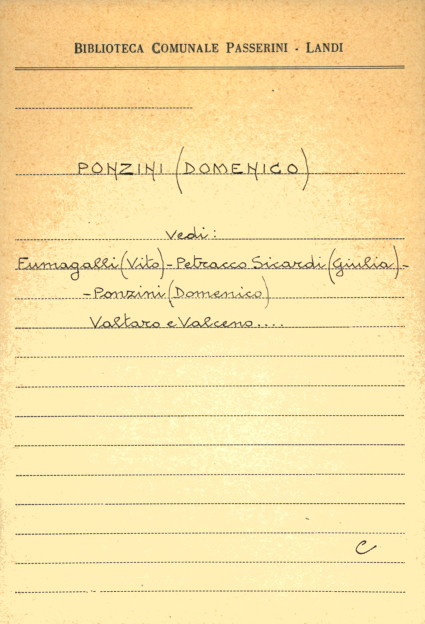 BIBLIOTECA COMUNALE PASSERINI - LANDI
PONZINI (DOMENICO)
Vedi:
Fumagalli (Vito) - Petracco Sicardi (Giulia) -
- Ponzini (Domenico)
Valtaro e Valceno....
C